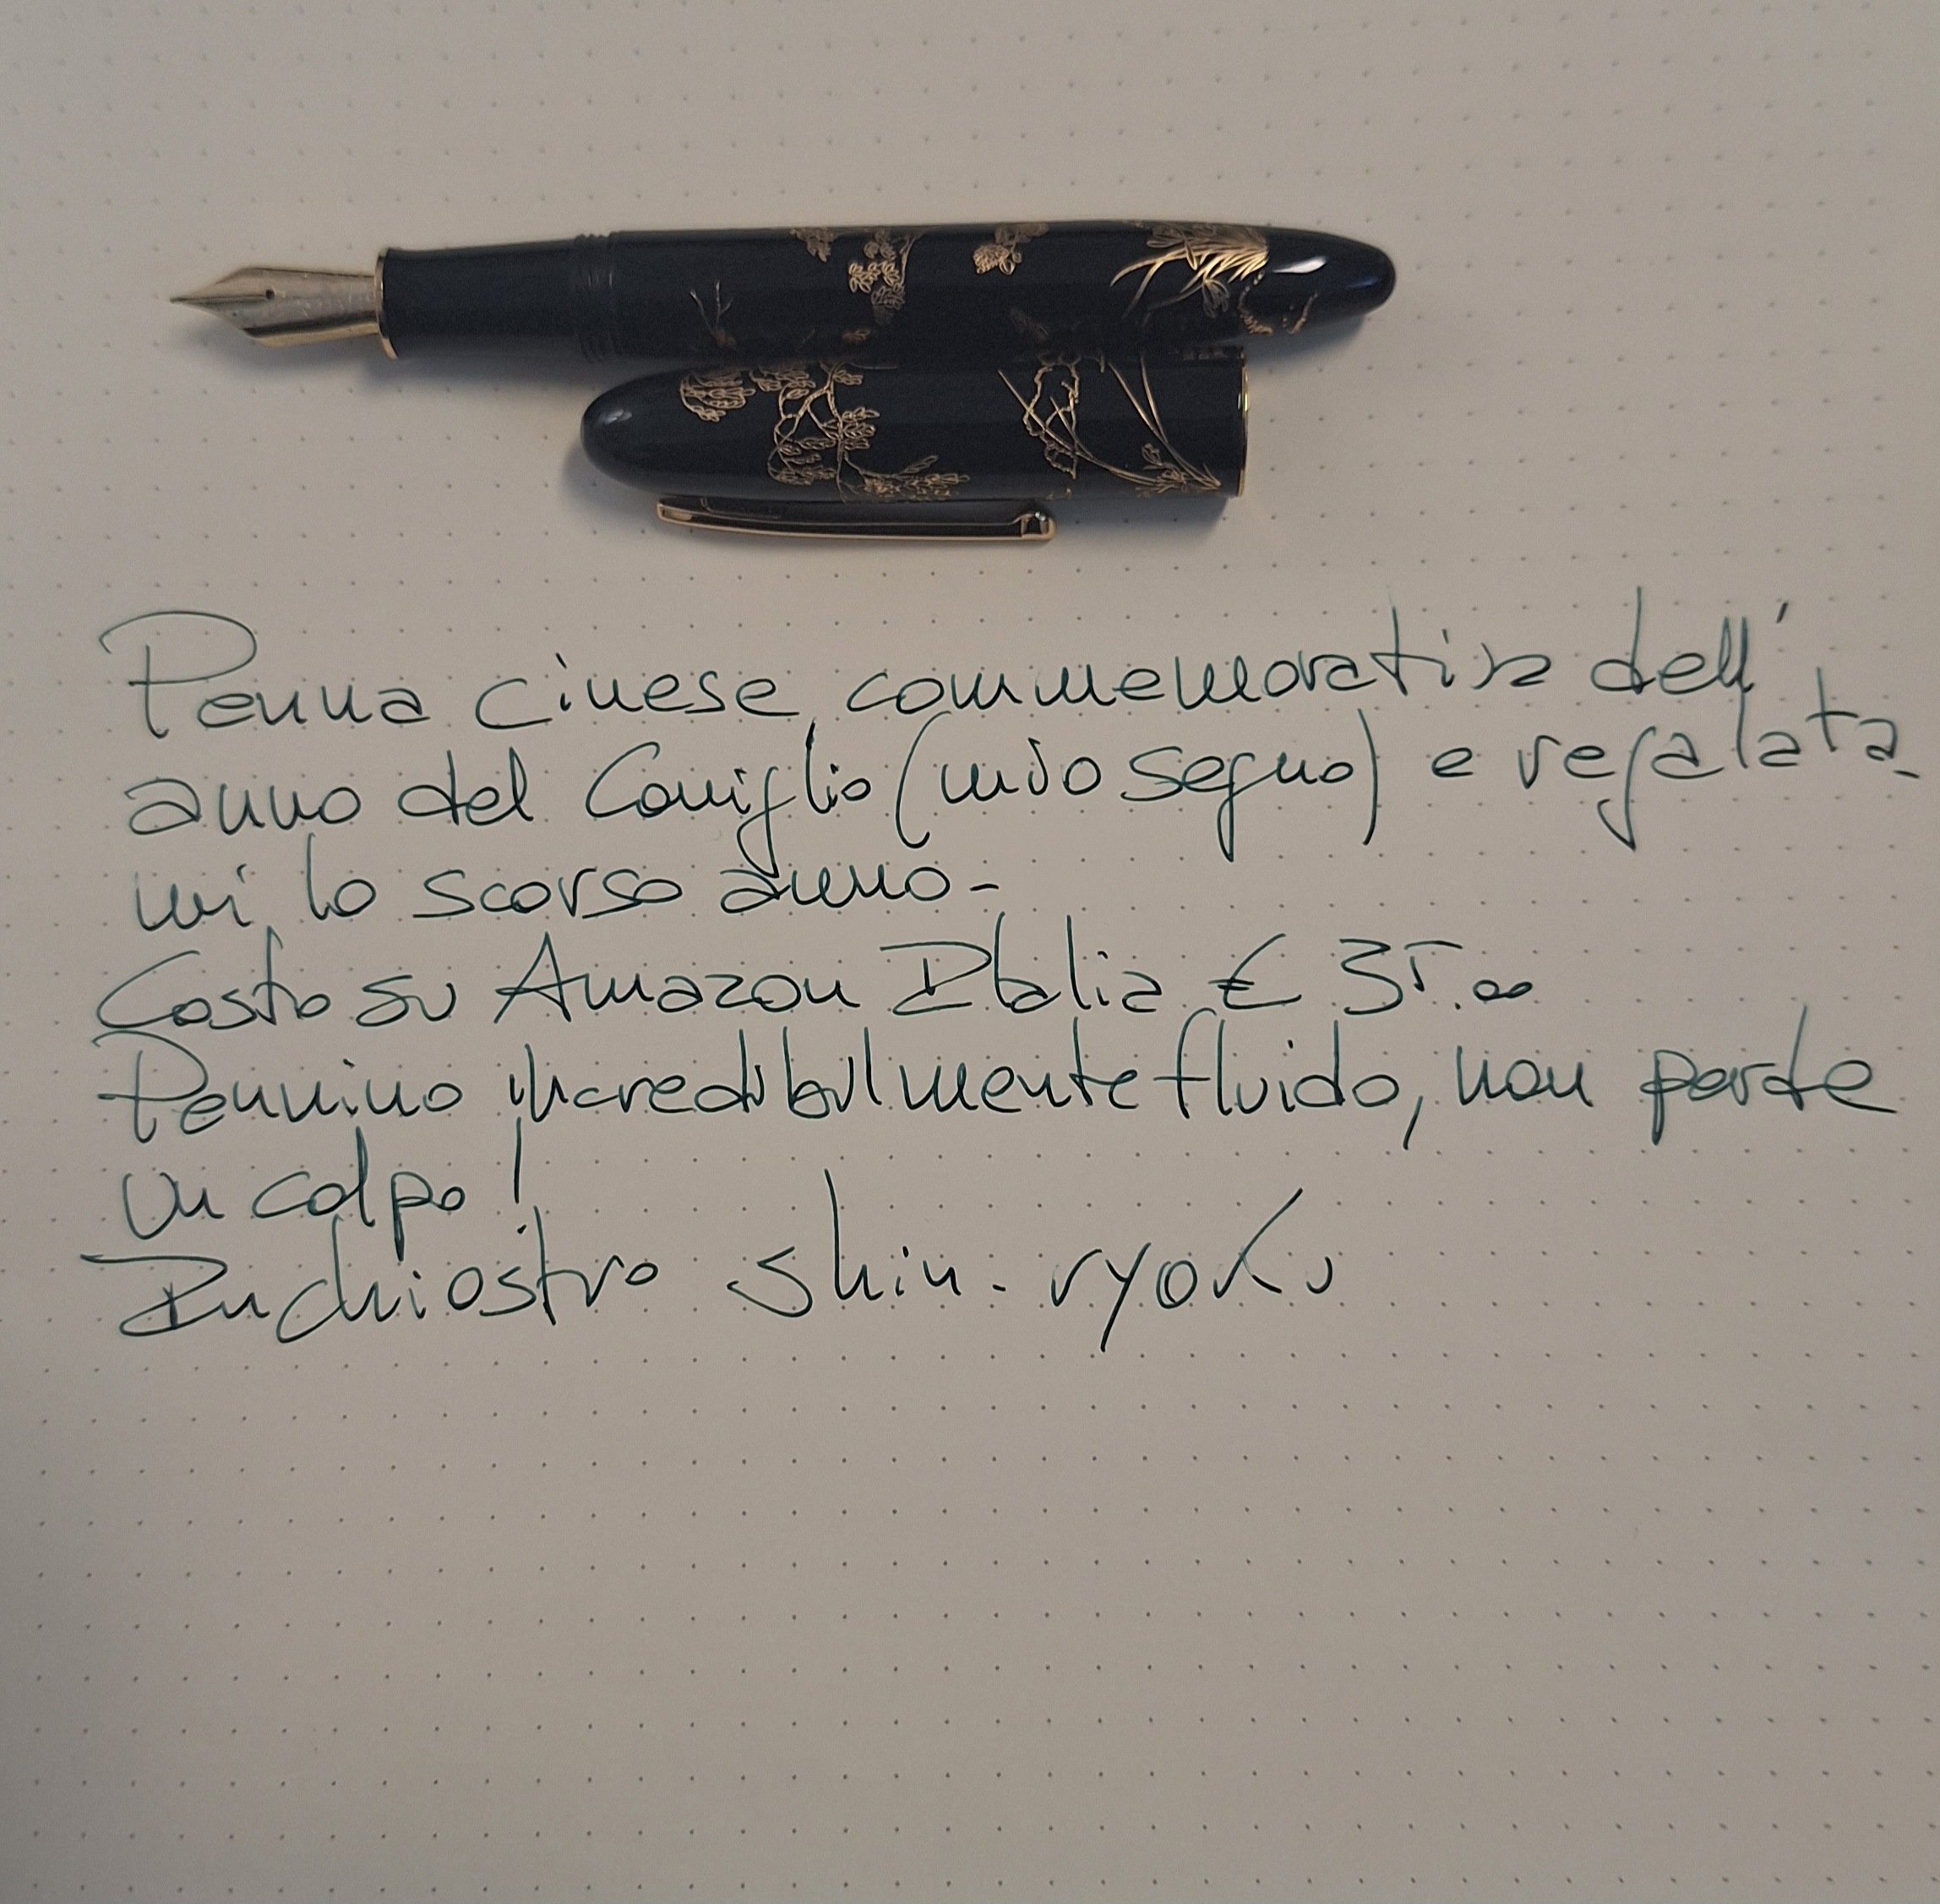 Penna cinese commemorativa dell'
anno del Coniglio (mio segno) e regalata
mi lo scorso anno-
Costo su Amazon Italia € 35.00
Pennino incredibilmente fluido, non perde
un colpo!
Inchiostro shin-ryoku